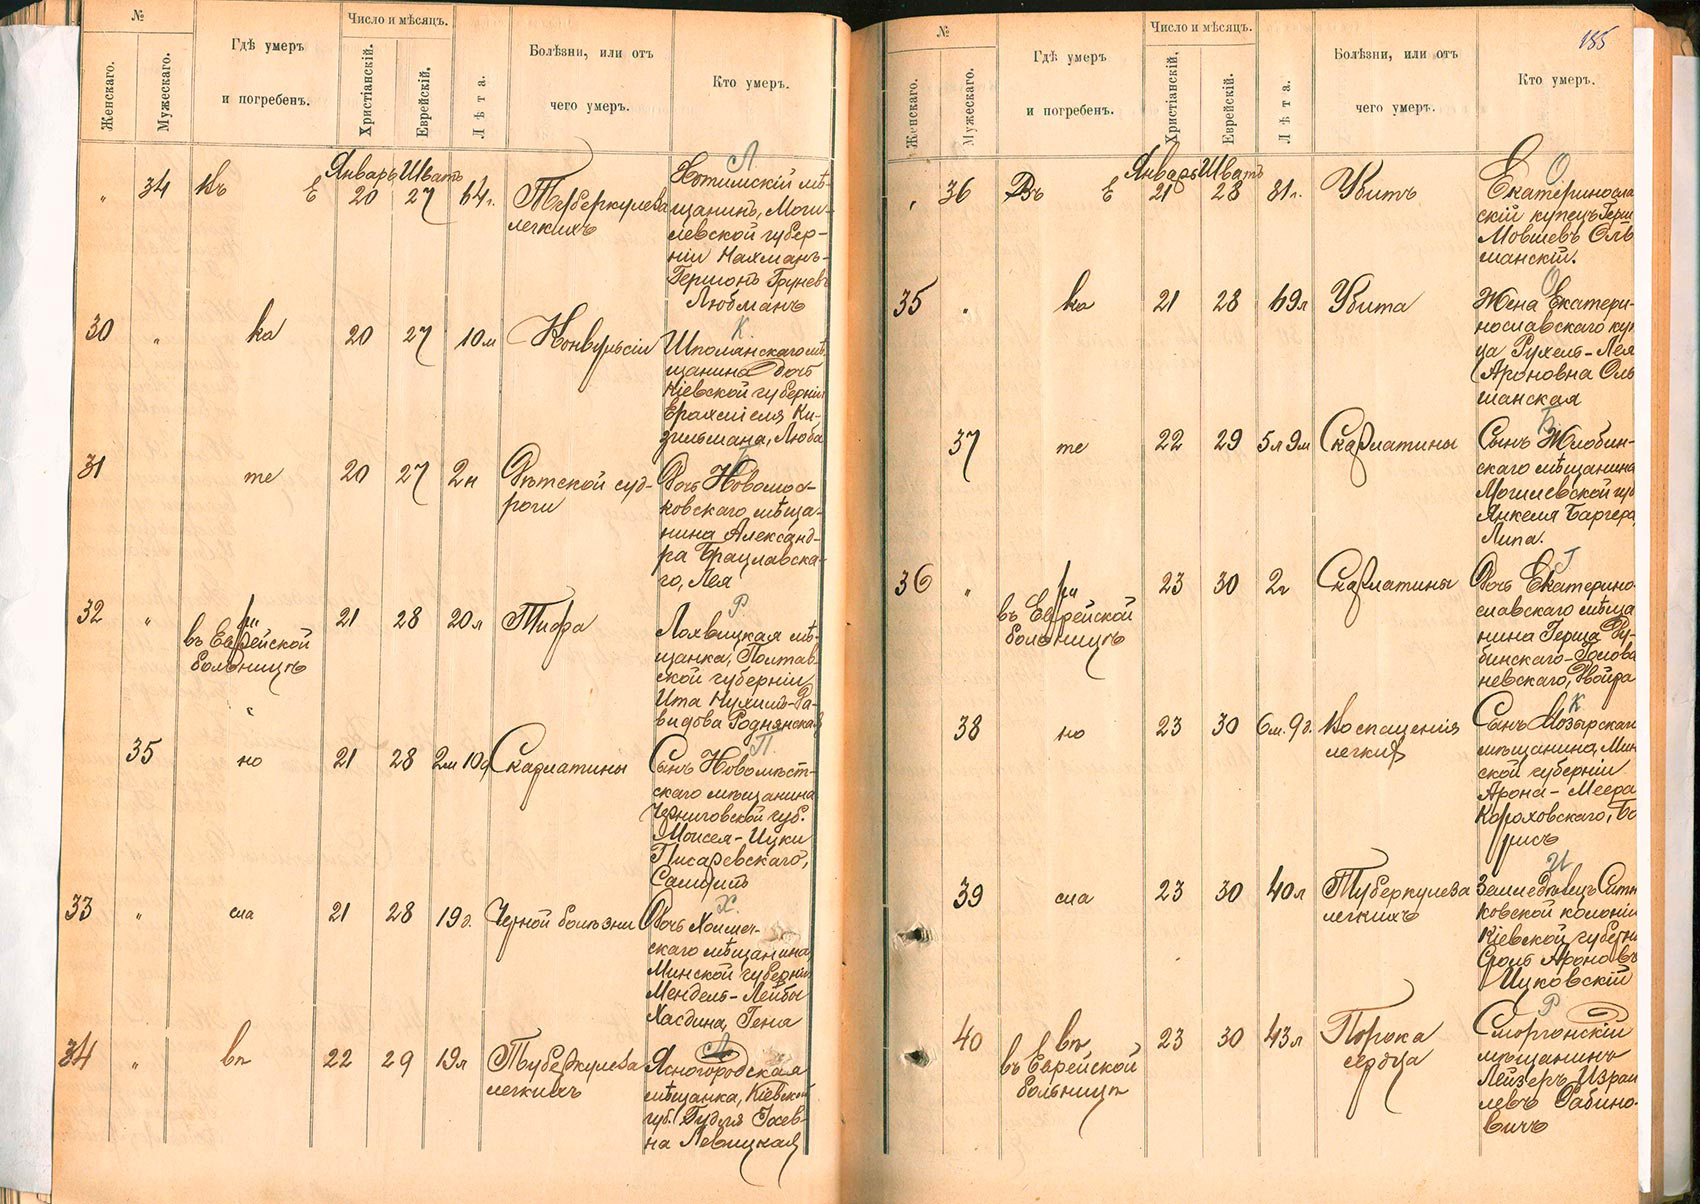 №
Женскаго.
Мужескаго.
Гдѣ умеръ
и погребенъ.
Число и мѣсяцъ.
Христіанскій.
Еврейскій.
Лѣта.
Болѣзни, или отъ
чего умеръ.
Кто умеръ.
Январь Шватъ
Л
" 34 Въ Е 20 27 64 г. Туберкулеза
легкихъ
Хотимскій мѣ-
щанинъ, Моги-
левской губер-
ніи Нахманъ-
Гершонъ
Любманъ
К.
30 " ка 20 27 10 м Конвульсіи
Шполянскаго мѣ
щанина дочь
Кіевской губерніи
Ерахміеля Ки-
зильмана, Люба
Б
31 те 20 27 2 н Дѣтской суд-
роги
Дочь Новомос-
ковскаго мѣща-
нина Александ-
ра Брацлавска-
го, Лея
Р
32 " ри
въ Еврейской
больницѣ
21 28 20 л Тифа
Лохвицкая мѣ-
щанка, Полтав-
ской губерніи
Ита Нухимъ-Да-
видова Роднянская
П.
35 но 21 28 2 м 10 д Скарлатины
Сынъ Новомѣст-
скаго мѣщанина
Черниговской губ.
Моисея-Ицки
Писаревскаго,
Х.
33 " сла 21 28 19 д. Черной болѣзни
Дочь Холмеч-
скаго мѣщанина
Минской губерніи
Мендель-Лейбы
Хасдина, Геня
Л
34 " вп 22 29 19 л Туберкулеза
легкихъ
Ясногородская
мѣщанка, Кіевской
губ.
на Левицкая
185
№
Женскаго.
Мужескаго.
Гдѣ умеръ
и погребенъ.
Число и мѣсяцъ.
Христіанскій.
Еврейскій.
Лѣта.
Болѣзни, или отъ
чего умеръ.
Кто умеръ.
Январь Шватъ
О
" 36 Въ Е 21 28 81 л. Убитъ
Екатеринослав
скій купецъ Герш
Мовшевъ Оль
шанскій.
О
35 " ка 21 28 69 л Убита
Жена Екатери-
нославскаго куп
ца Рухель-Лея
Ароновна Оль
шанская
Б
37 те 22 29 5 л 9 м Скарлатины
Сынъ Жлобин-
скаго мѣщанина
Могилевской гу
Янкеля Баргера
Липа.
Г
36 " ри
въ Еврейской
больницѣ
23 30 2 г Скарлатины
Дочь Екатерино-
славскаго мѣща
нина Герша Ду-
бинскаго-Голова
невскаго, Двойра
К
38 но 23 30 6 м. 9 д. Воспаленія
легких
Сынъ Мозырскаго
мѣщанина, Мин
ской губерніи
Арона-Меера
Короховскаго, Бо
рисъ
И
39 сла 23 30 40 л Туберкулеза
легкихъ
Земледѣлецъ
ковской колоніи
Кіевской губерн
Сроль Ароновъ
Ицковскій
Р
40 вп
въ Еврейской
больницѣ
23 30 43 л Порока
сердца
Сморгонскій
мѣщанинъ
Лейзеръ Израи
левъ Рабино-
вичъ